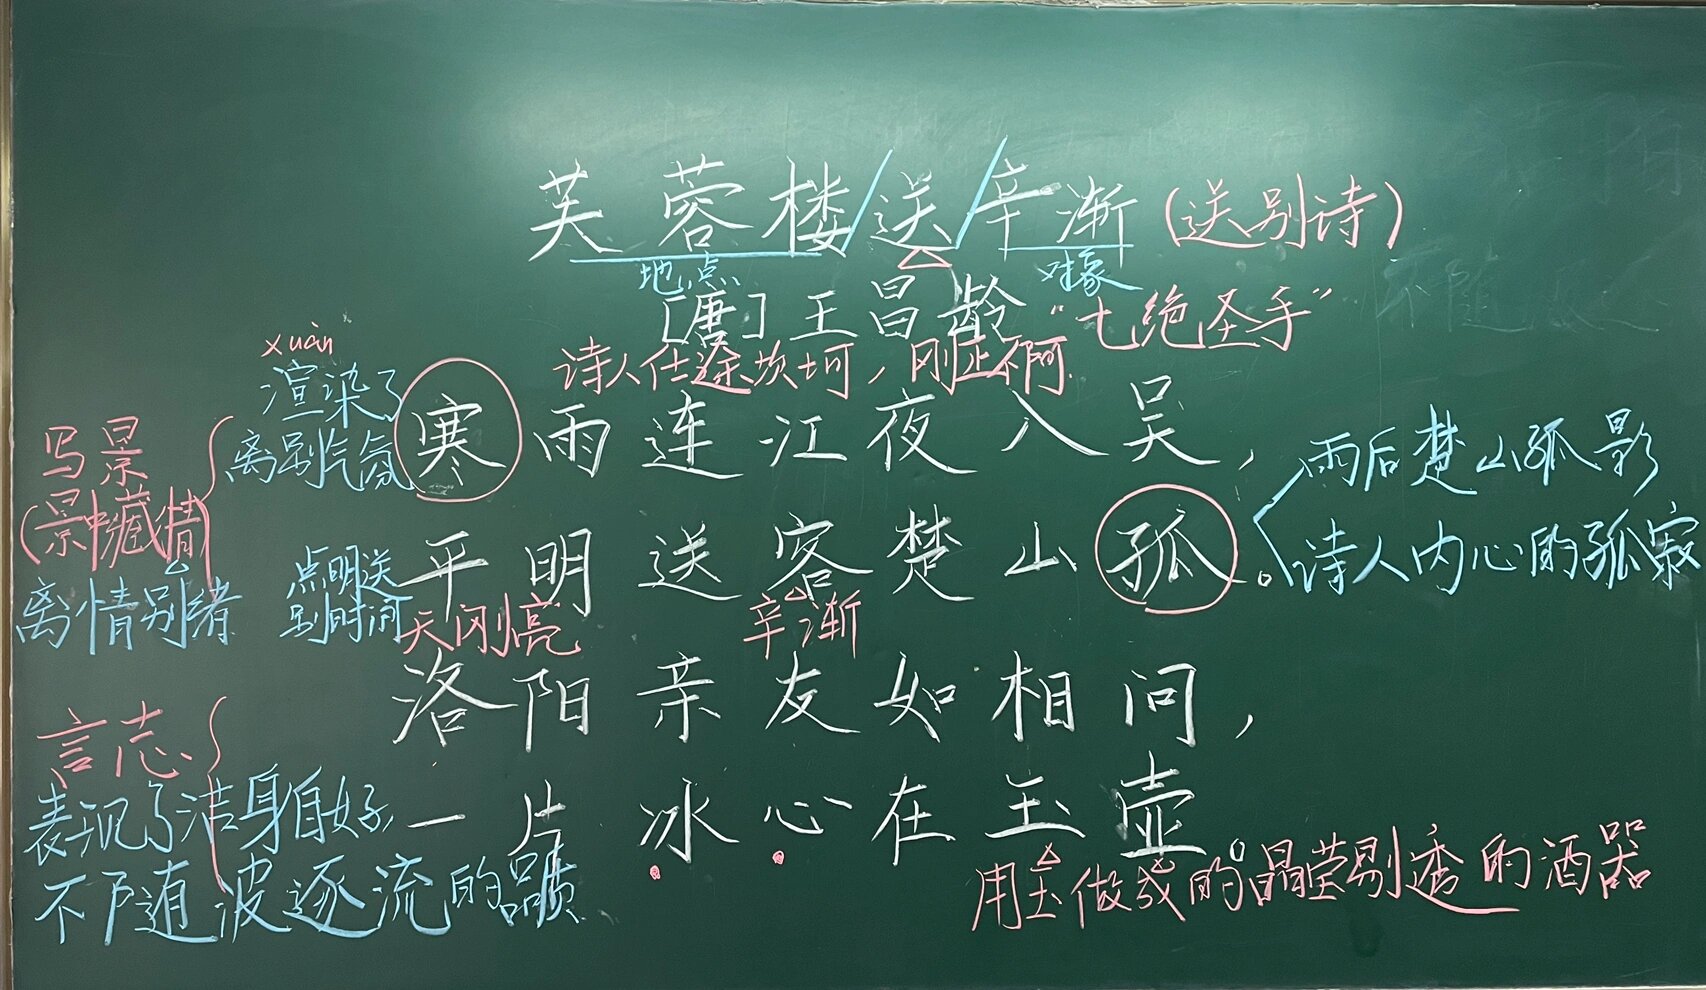 芙蓉楼/送/辛渐(送别诗)
地点 对象
[唐]王昌龄 "七绝圣手"
诗人仕途坎坷，刚正不阿
xuàn
渲染了
离别气氛
寒雨连江夜入吴，
写景
(景中藏情)
离情别绪
雨后楚山孤影
诗人内心的孤寂
点明送
别时间
平明送客楚山孤。
天刚亮 辛渐
洛阳亲友如相问，
言志
表现了洁身自好，
不随波逐流的品质
一片冰心在玉壶。
用玉做成的晶莹剔透的酒器